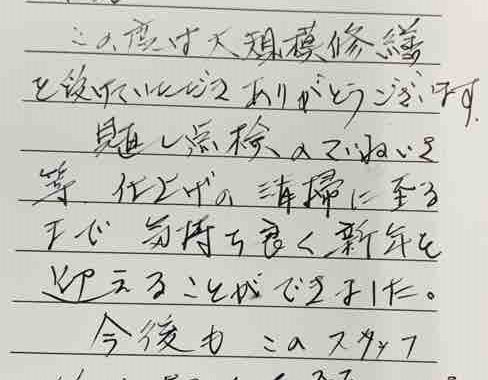 この度は大規模修繕
を設けていただき ありがとうございます.
見直し点検、のていねいさ
等 仕上げの清掃に至る
まで 気持ち良く新年を
迎えることができました。
今後も このスタッフ